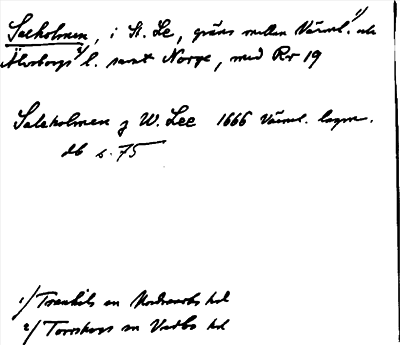 Salholmen, i St. Le, gräns mellan Värml.¹⁾ och
Älvsborgs²⁾ l. samt Norge, med Rr 19
Salsholmen g W. Lee 1666 Värml. lagm.
db s. 75
1/ Trankils sn Nordmarks hd
2/ Torrskogs sn Vedbo hd